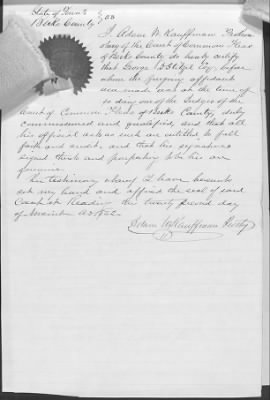 State of Penn'a
Berks County } SS
I Adam W. Kauffman Prothono
tary of the Court of Common Pleas
of Berks County do hereby certify
that George
whom the foregoing affidavit
was made was at the time of
so doing one of the Judges of the
Court of Common Pleas of Berks County, duly
commissioned and qualified, and that all
his official acts as such are entitled to full
faith and credit, and that his signature
signed thereto and purporting to be his are
genuine.
In testimony whereof I have hereunto
set my hand and affixed the seal of said
Court at Reading the twenty second day
of A.D. 1862.
Adam W. Kauffman Prothy